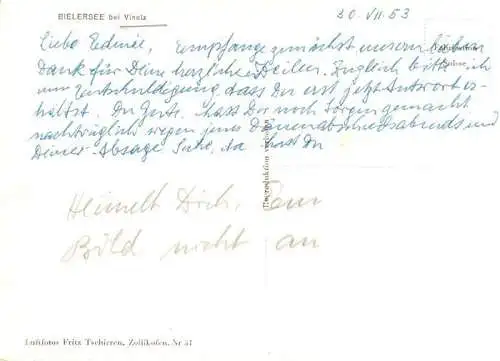 BIELERSEE bei Vinelz
30. VII. 53
Liebe Edmée, Empfange zunächst unsern lieben
Dank für Deine herzlichen Zeilen. Zugleich bitte ich
um Entschuldigung, dass Du erst jetzt Antwort er-
hältst. Du Gute, hast Dir noch Sorgen gemacht
nachträglich wegen jenes Damenabschiedsabends und
Deiner Absage Siehe, da hast Du
Reproduktion verboten
Heimelt Dich, Bild nicht an
Luftfotos Fritz Tschirren, Zollikofen, Nr 51